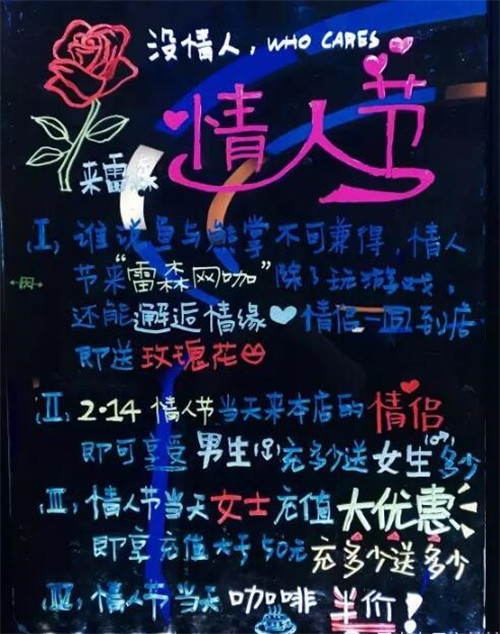 没情人，WHO CARES
情人节
来雷森
I、谁说鱼与熊掌不可兼得，情人
节来“雷森网咖”除了玩游戏，
还能邂逅情缘 情侣一同到店
即送玫瑰花
II、2·14 情人节当天来本店的情侣
即可享受男生(♂)充多少送女生(♀)多少
III、情人节当天女士充值大优惠
即享充值大于50元充多少送多少
IV、情人节当天咖啡半价！